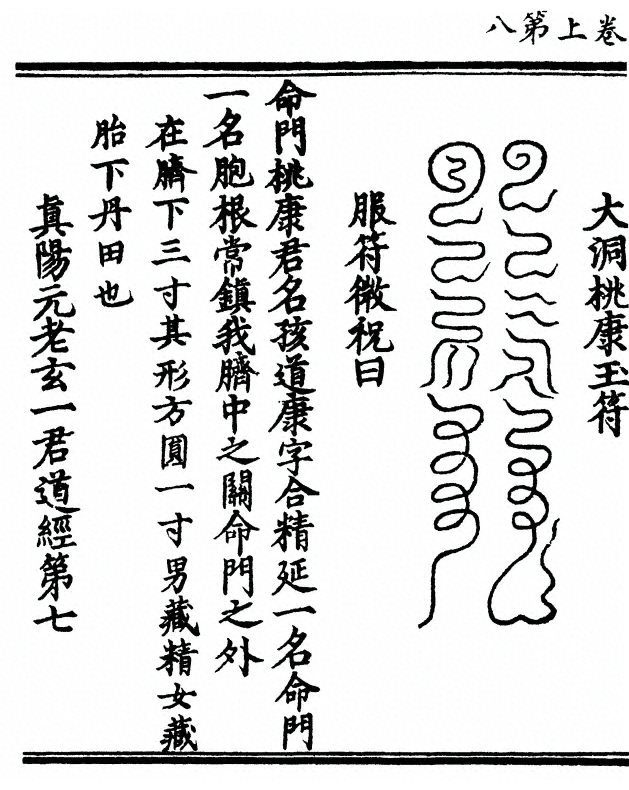 卷上第八
大洞桃康玉符
服符微祝曰
命門桃康君名孩道康字合精延一名命門
一名胞根常鎮我臍中之關命門之外
在臍下三寸其形方圓一寸男藏精女藏
胎下丹田也
真陽元老玄一君道經第七